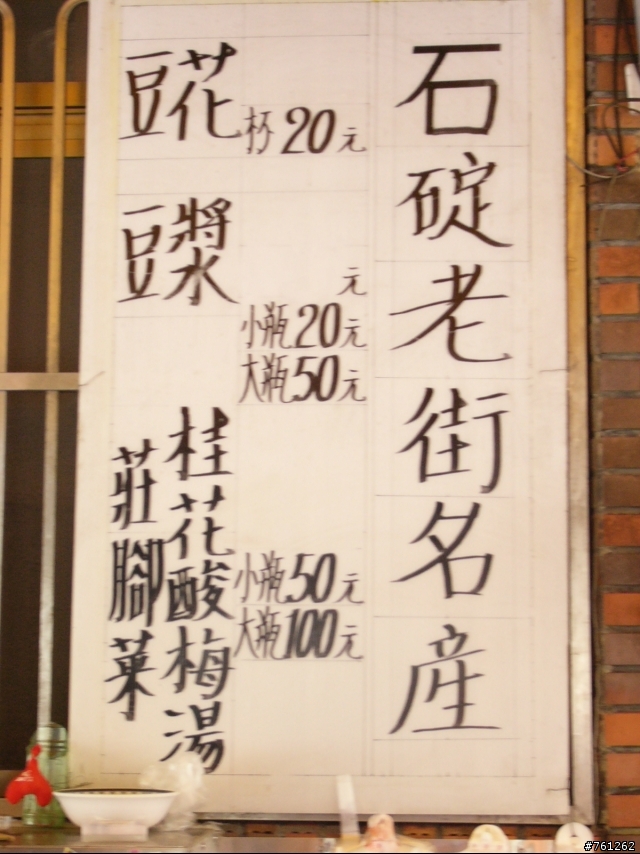 石碇老街名產
豆花 杯20元
豆漿 元
小瓶20元
大瓶50元
桂花酸梅湯
小瓶50元
大瓶100元
莊腳菓
#761262